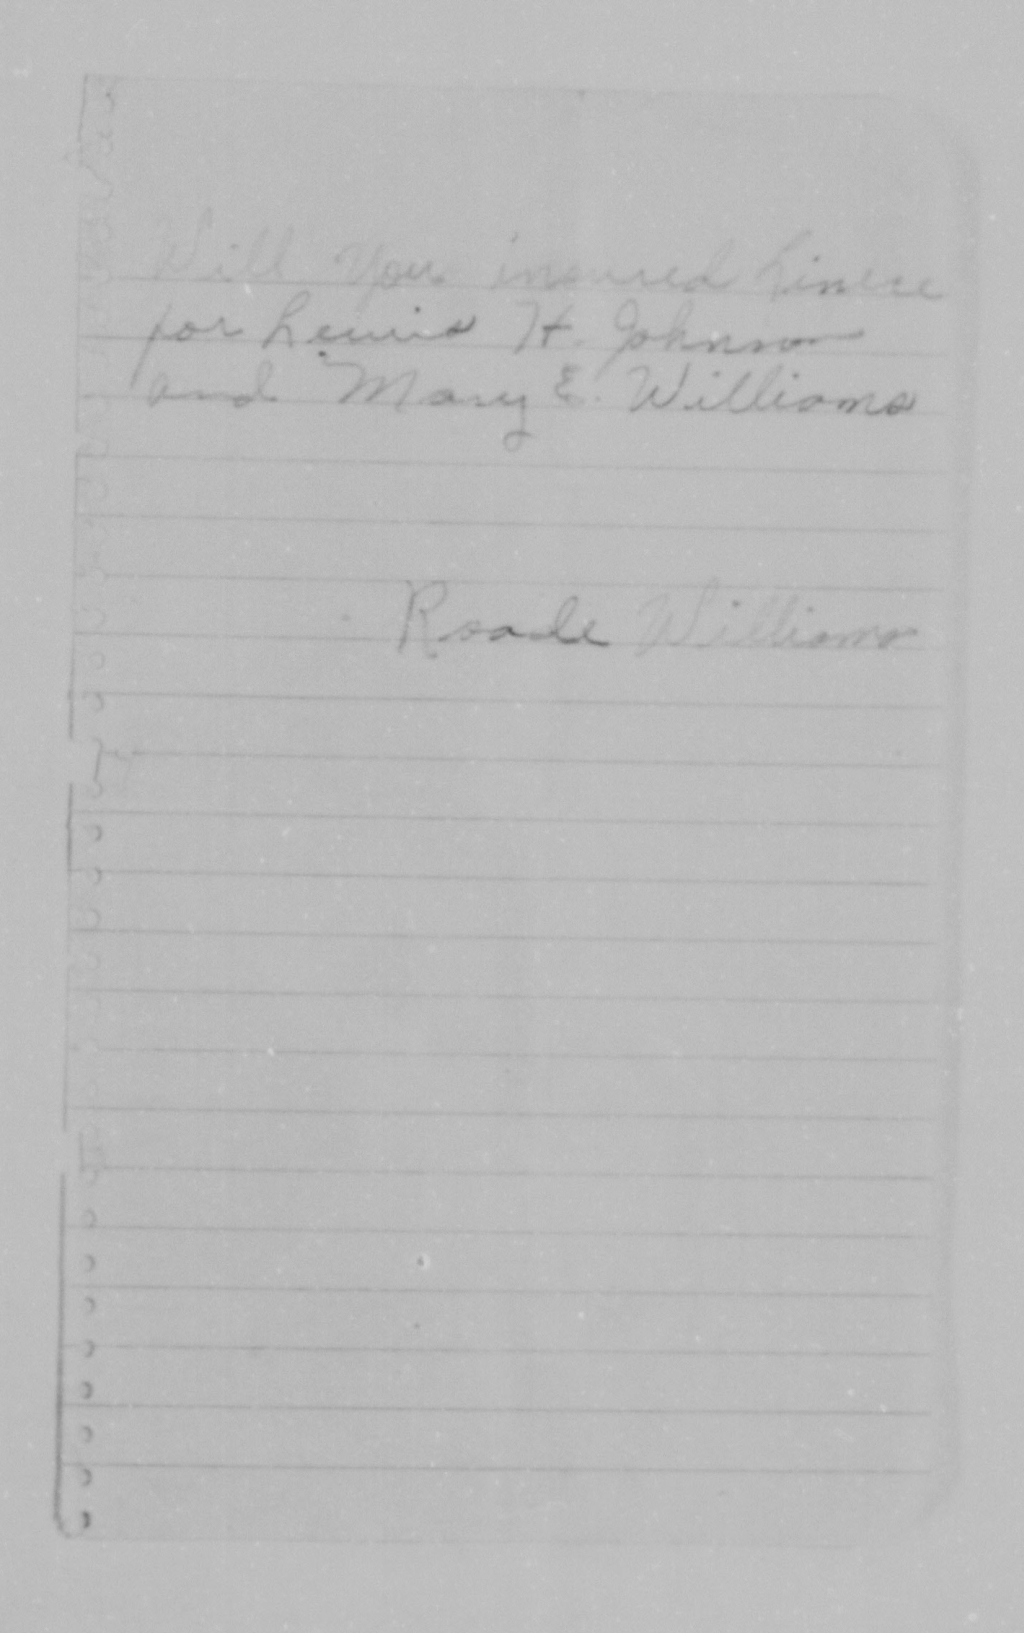 Will you insured Linece
for Lewis H. Johnson
and Mary E. Williams
Williams